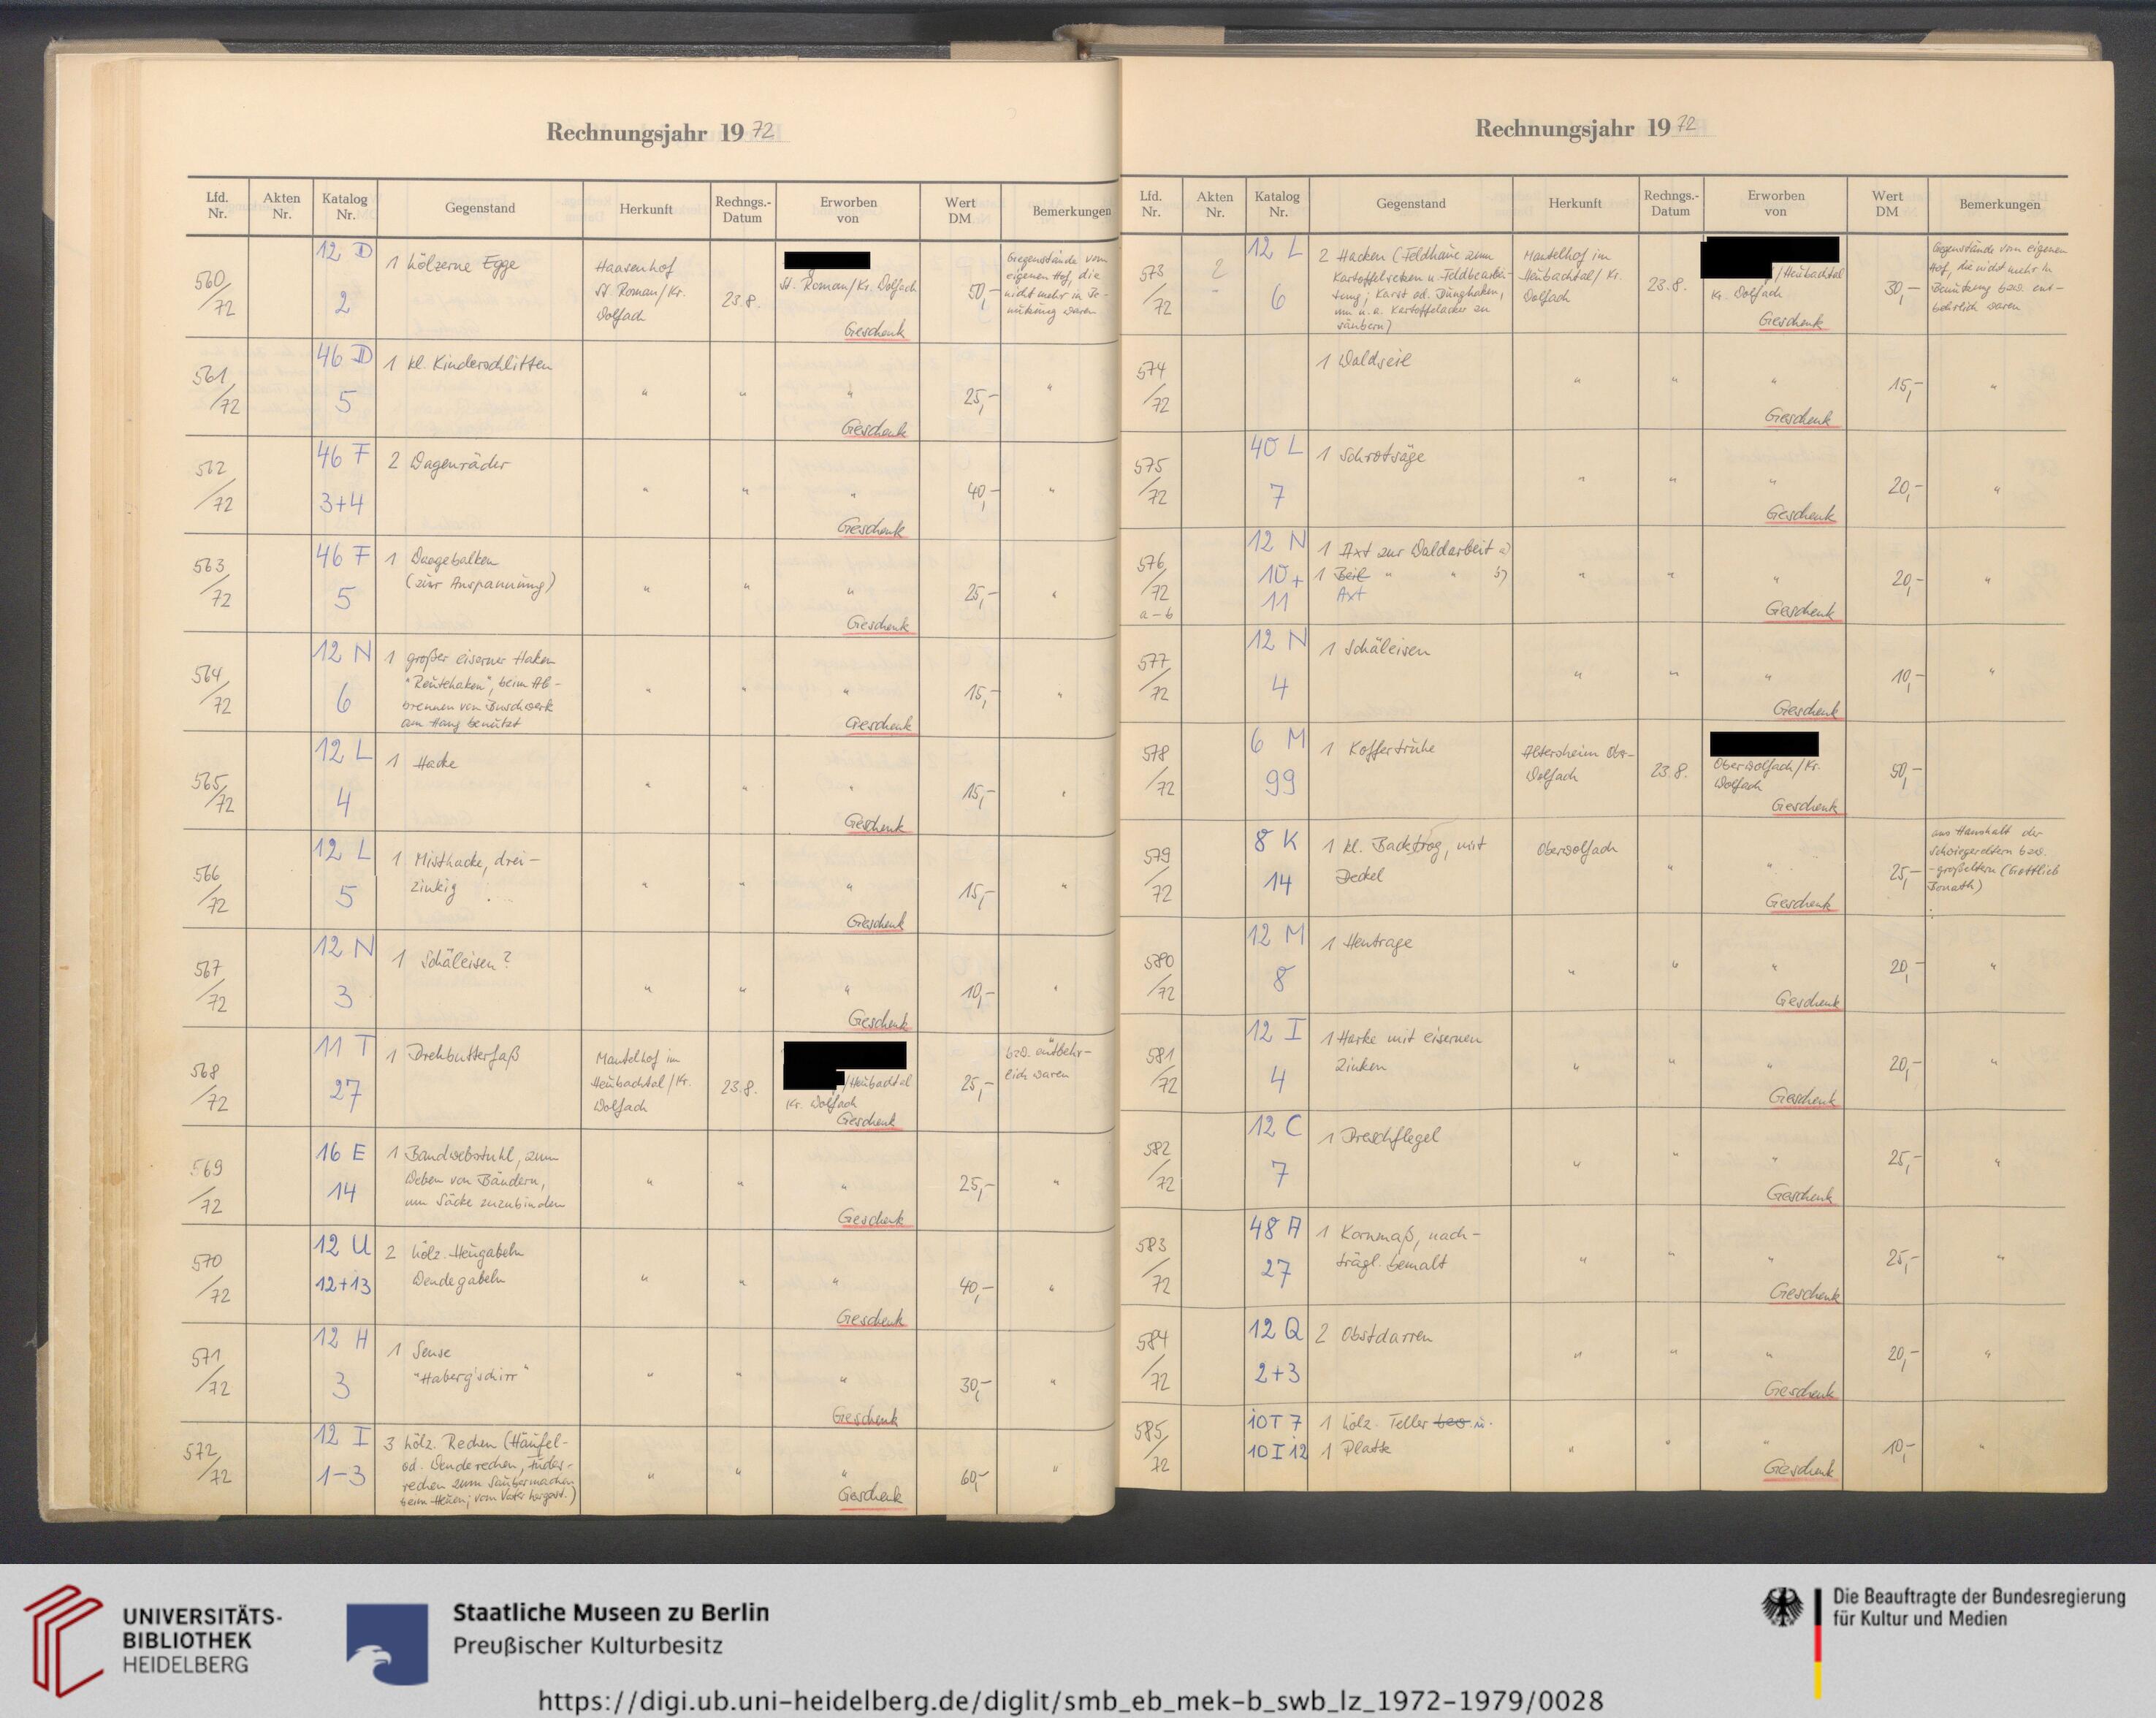 Rechnungsjahr 1972
Lfd. Nr.
Akten Nr.
Katalog Nr.
Gegenstand
Herkunft
Rechngs.-Datum
Erworben von
Wert DM
Bemerkungen
560/72
12 D
2
1 hölzerne Egge
Haasenhof
St. Roman/Kr.
Wolfach
23.8.
St. Roman/Kr. Wolfach
Geschenk
50,-
Gegenstände vom
eigenen Hof, die
nicht mehr in Be-
nützung waren
561/72
46 D
5
1 kl. Kinderschlitten
"
"
"
Geschenk
25,-
"
562/72
46 F
3+4
2 Wagenräder
"
"
"
Geschenk
40,-
"
563/72
46 F
5
1 Waagebalken
(zur Anspannung)
"
"
"
Geschenk
25,-
"
564/72
12 N
6
1 großer eiserner Haken
"Reutehaken", beim Ab-
brennen von Buschwerk
am Hang benützt
"
"
"
Geschenk
15,-
"
565/72
12 L
4
1 Hacke
"
"
"
Geschenk
15,-
"
566/72
12 L
5
1 Misthacke, drei-
zinkig
"
"
"
Geschenk
15,-
"
567/72
12 N
3
1 Schäleisen?
"
"
"
Geschenk
10,-
"
568/72
11 T
27
1 Drehbutterfaß
Mantelhof im
Heubachtal/Kr.
Wolfach
23.8.
/Heubachtal
Kr. Wolfach
Geschenk
25,-
"
bzw. entbehr-
lich waren
569/72
16 E
14
1 Bandwebstuhl, zum
Weben von Bändern,
um Säcke zuzubinden
"
"
"
Geschenk
25,-
"
570/72
12 U
12+13
2 hölz. Heugabeln
Wendegabeln
"
"
"
Geschenk
40,-
"
571/72
12 H
3
1 Sense
"Haberg'schirr"
"
"
"
Geschenk
30,-
"
572/72
12 I
1-3
3 hölz. Rechen (Häufel-
od. Wenderechen, Fuder-
rechen zum Saubermachen
beim Heuen; vom Vater hergest.)
"
"
"
Geschenk
60,-
"
Rechnungsjahr 1972
Lfd. Nr.
Akten Nr.
Katalog Nr.
Gegenstand
Herkunft
Rechngs.-Datum
Erworben von
Wert DM
Bemerkungen
573/72
2
12 L
6
2 Hacken (Feldhaue zum
Kartoffelstecken u. Feldbearbei-
tung; Karst od. Dunghaken,
um u. a. Kartoffelacker zu
säubern)
Mantelhof im
Heubachtal/Kr.
Wolfach
23.8.
/Heubachtal
Kr. Wolfach
Geschenk
30,-
Gegenstände vom eigenen
Hof, die nicht mehr in
Benützung bzw. ent-
behrlich waren
574/72
1 Waldseil
"
"
"
Geschenk
15,-
"
575/72
40 L
7
1 Schrotsäge
"
"
"
Geschenk
20,-
"
576/72
a-b
12 N
10+
11
1 Axt zur Waldarbeit a)
1 Beil " " b)
Axt
"
"
"
Geschenk
20,-
"
577/72
12 N
4
1 Schäleisen
"
"
"
Geschenk
10,-
"
578/72
6 M
99
1 Koffertruhe
Altersheim Ober-
Wolfach
23.8.
Oberwolfach/Kr.
Wolfach
Geschenk
50,-
579/72
8 K
14
1 kl. Backtrog, mit
Deckel
Oberwolfach
"
"
Geschenk
25,-
aus Haushalt der
Schwiegereltern bzw.
-großeltern (Gottlieb
Bonath)
580/72
12 M
8
1 Heutrage
"
"
"
Geschenk
20,-
"
581/72
12 I
4
1 Harke mit eisernen
Zinken
"
"
"
Geschenk
20,-
"
582/72
12 C
7
1 Dreschflegel
"
"
"
Geschenk
25,-
"
583/72
48 A
27
1 Kornmaß, nach-
trägl. bemalt
"
"
"
Geschenk
25,-
"
584/72
12 Q
2+3
2 Obstdarren
"
"
"
Geschenk
20,-
"
585/72
10T 7
10 I 12
1 hölz. Teller bzw. u.
1 Platte
"
"
"
Geschenk
10,-
"
UNIVERSITÄTS-
BIBLIOTHEK
HEIDELBERG
Staatliche Museen zu Berlin
Preußischer Kulturbesitz
Die Beauftragte der Bundesregierung
für Kultur und Medien
https://digi.ub.uni-heidelberg.de/diglit/smb_eb_mek-b_swb_lz_1972-1979/0028